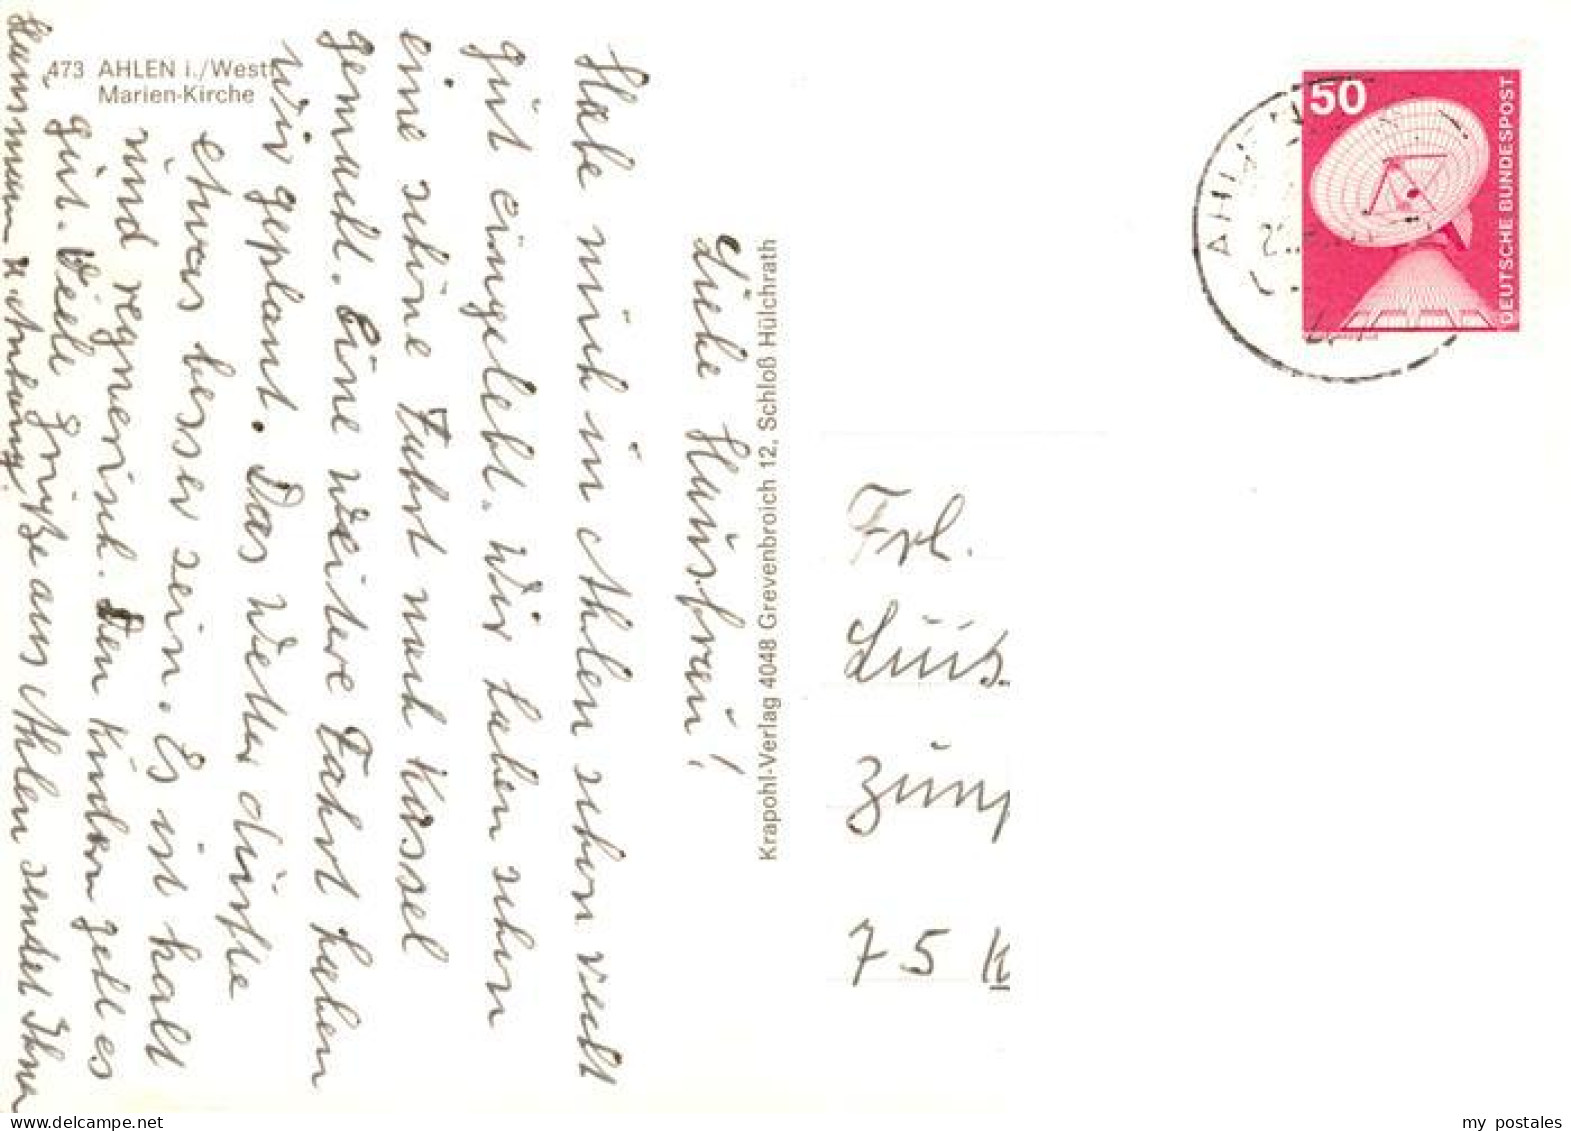 473 AHLEN i./Westf.
Marien-Kirche
Liebe Hausfrau!
Habe mich in Ahlen schon recht
gut eingelebt. Wir haben schon
eine schöne Fahrt nach Kassel
gemacht. Eine weitere Fahrt haben
wir geplant. Das Wetter dürfte
etwas besser sein. Es ist halt
und regnerisch. Den Kindern geht es
gut. Viele Grüße aus Ahlen sendet Ihnen
Krapohl-Verlag 4048 Grevenbroich 12, Schloß Hülchrath
50
DEUTSCHE BUNDESPOST
AHLEN
Frl.
Luis
Zun
75 K
my postales